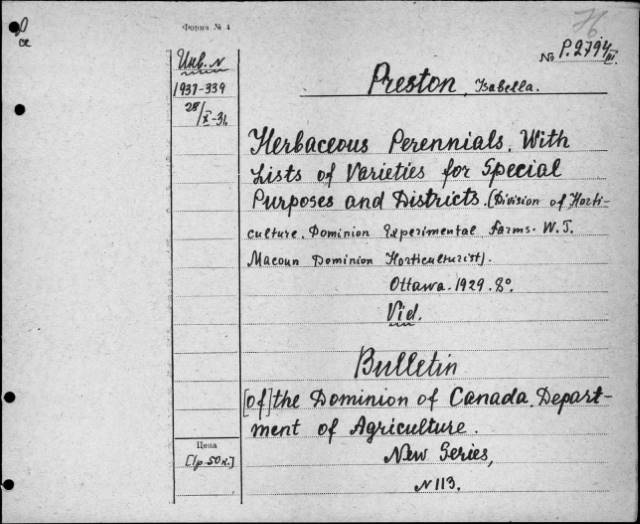 Форма № 4
76
№ P.2794/III.
Инв. N
1937-339
28/X-36
Preston, Isabella.
Herbaceous Perennials. With
Lists of Varieties for Special
Purposes and Districts. (Division of Horti-
culture. Dominion Experimental Farms. W.T.
Macoun Dominion Horticulturist).
Ottawa. 1929. 8°.
Vid.
Bulletin
[of] the Dominion of Canada. Depart-
ment of Agriculture.
New Series,
N 113.
Цена
[1р. 50к.]